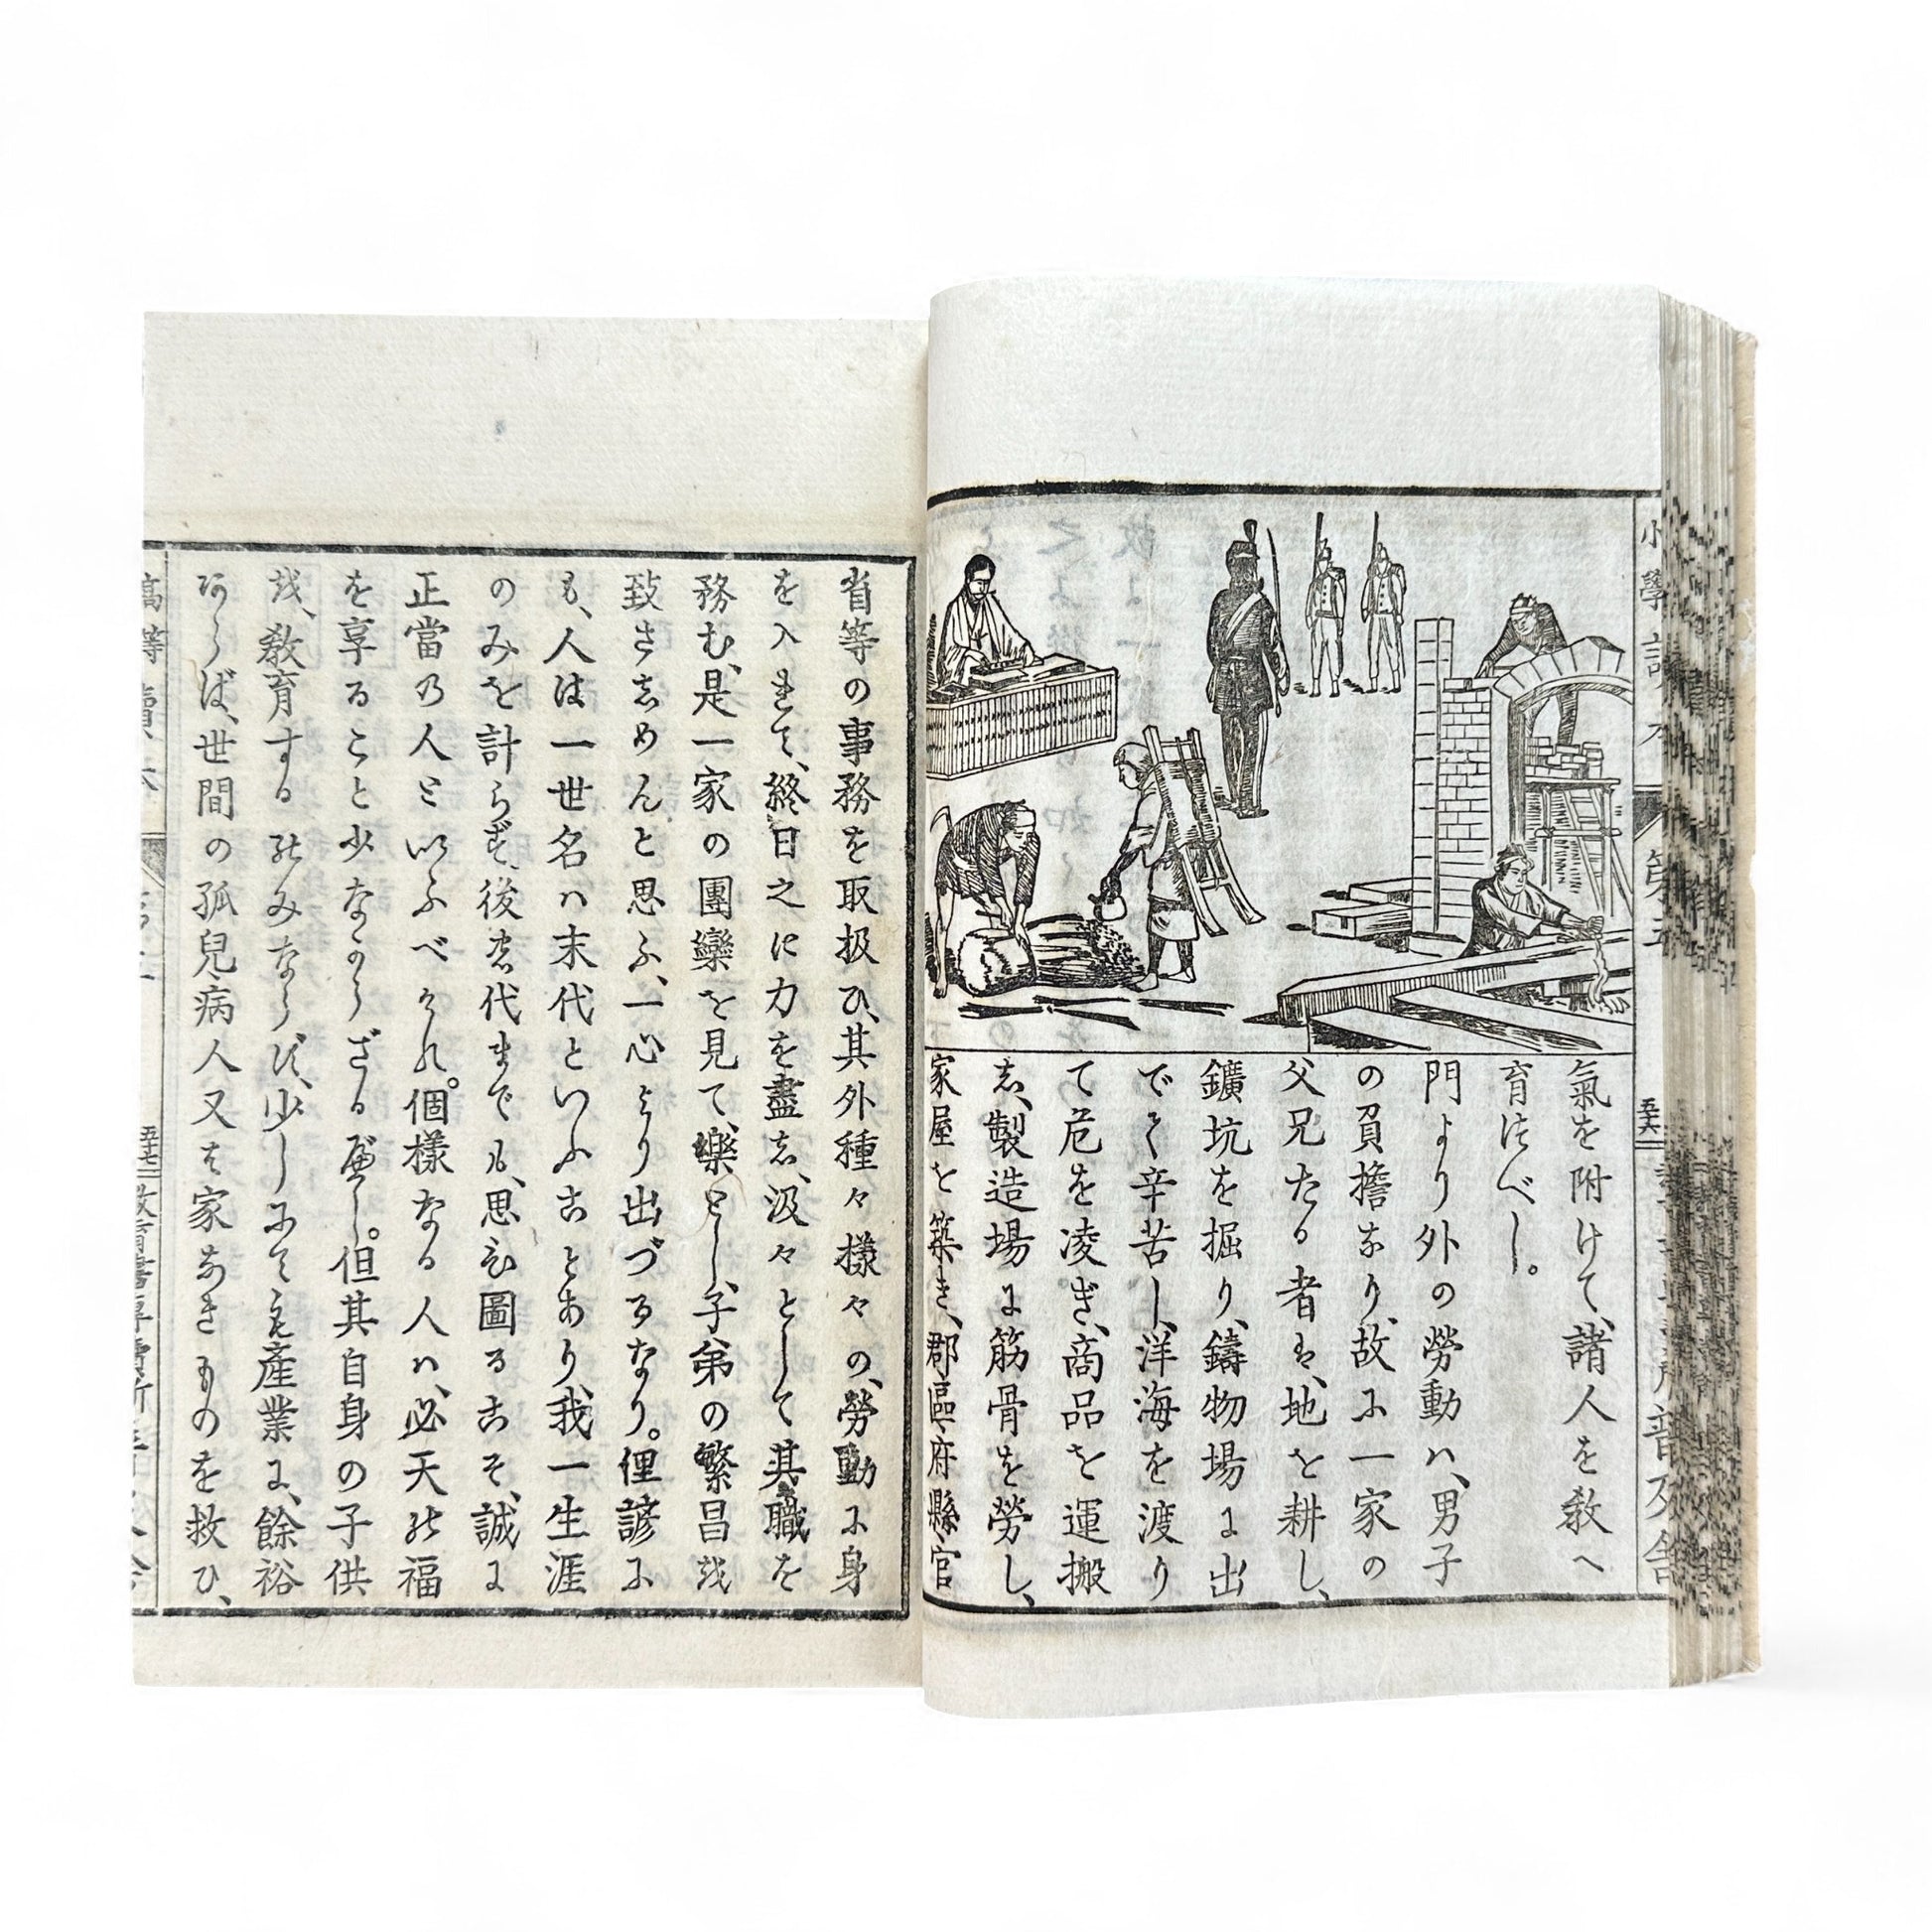 氣を附けて、諸人を敎へ
育つべし。
門より外の勞動ハ、男子
の負擔なり、故に一家の
父兄たる者は、地を耕し、
鑛坑を掘り、鑄物場に出
でて辛苦し、洋海を渡り
て危を凌ぎ、商品を運搬
し、製造場に筋骨を勞し、
家屋を築き、郡區府縣官
省等の事務を取扱ひ、其外種々樣々の、勞動に身
を入れて、終日之に力を盡し、汲々として其職を
務む、是一家の團欒を見て、樂とし、子弟の繁昌を
致さしめんと思ふ、一心より出づるなり。俚諺に
も、人は一世名ハ末代といふことあり、我一生涯
のみを計らず、後の代までも、思ひ圖ること、そ、誠に
正當の人といふべけれ。個樣なる人ハ、必天の福
を享ること少なからざるべし。但其自身の子供
を、敎育するのみならず、少しにても産業に、餘裕
あらば、世間の孤兒病人又は家なきものを救ひ、
高等讀本
五十七